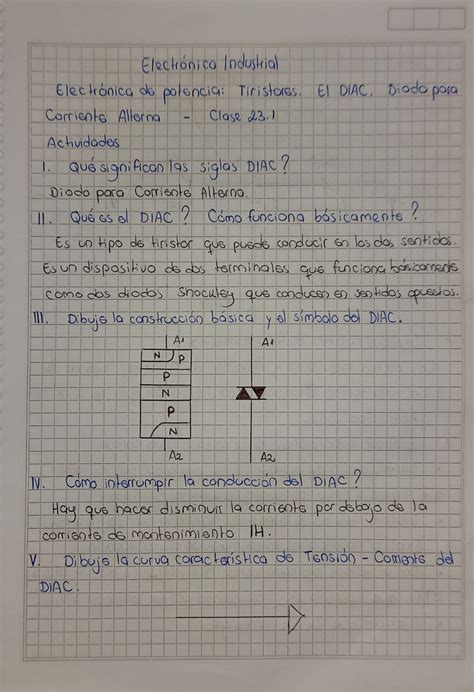 Electrónica Industrial
Electrónica de potencia: Tiristores. El DIAC. Diodo para
Corriente Alterna - Clase 23.1
Actividades
I. Qué significan las siglas DIAC?
Diodo para Corriente Alterna.
II. Qué es el DIAC? Cómo funciona básicamente?
Es un tipo de tiristor que puede conducir en los dos sentidos.
Es un dispositivo de dos terminales que funciona básicamente
como dos diodos Shockley que conducen en sentidos opuestos.
III. Dibuje la construcción básica y el símbolo del DIAC.
A1 A1
N P
P
N
P
N
A2 A2
IV. Cómo interrumpir la conducción del DIAC?
Hay que hacer disminuir la corriente por debajo de la
corriente de mantenimiento IH.
V. Dibuje la curva característica de Tensión - Corriente del
DIAC.